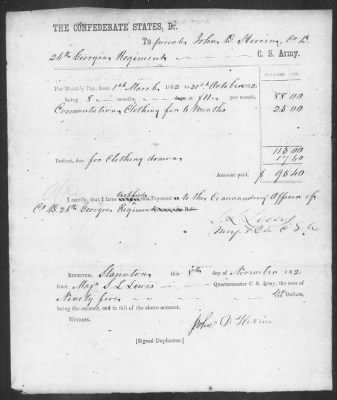 THE CONFEDERATE STATES, Dr.
To private John B. Herrin, Co B
26th Georgia Regiment C. S. Army.
DOLLARS. CTS.
For Monthly Pay, from 1st March 1862 to 31st October 1862
being 8 months, $11 per month. 88.00
Commutation Clothing for 6 Months 25.00
113.00
Deduct, due for Clothing drawn 17.60
Amount paid, $ 95.40
I certify, that I have this Payment to the Commanding Officer of
Co B. 26th Georgia Regiment
Maj & QM C S A
RECEIVED, Staunton this 8th day of November 1862
from Maj. S L Lewis Quartermaster C. S. Army, the sum of
Ninety five Dollars,
being the amount, and in full of the above account.
WITNESS.
John B Herrin
[Signed Duplicates.]